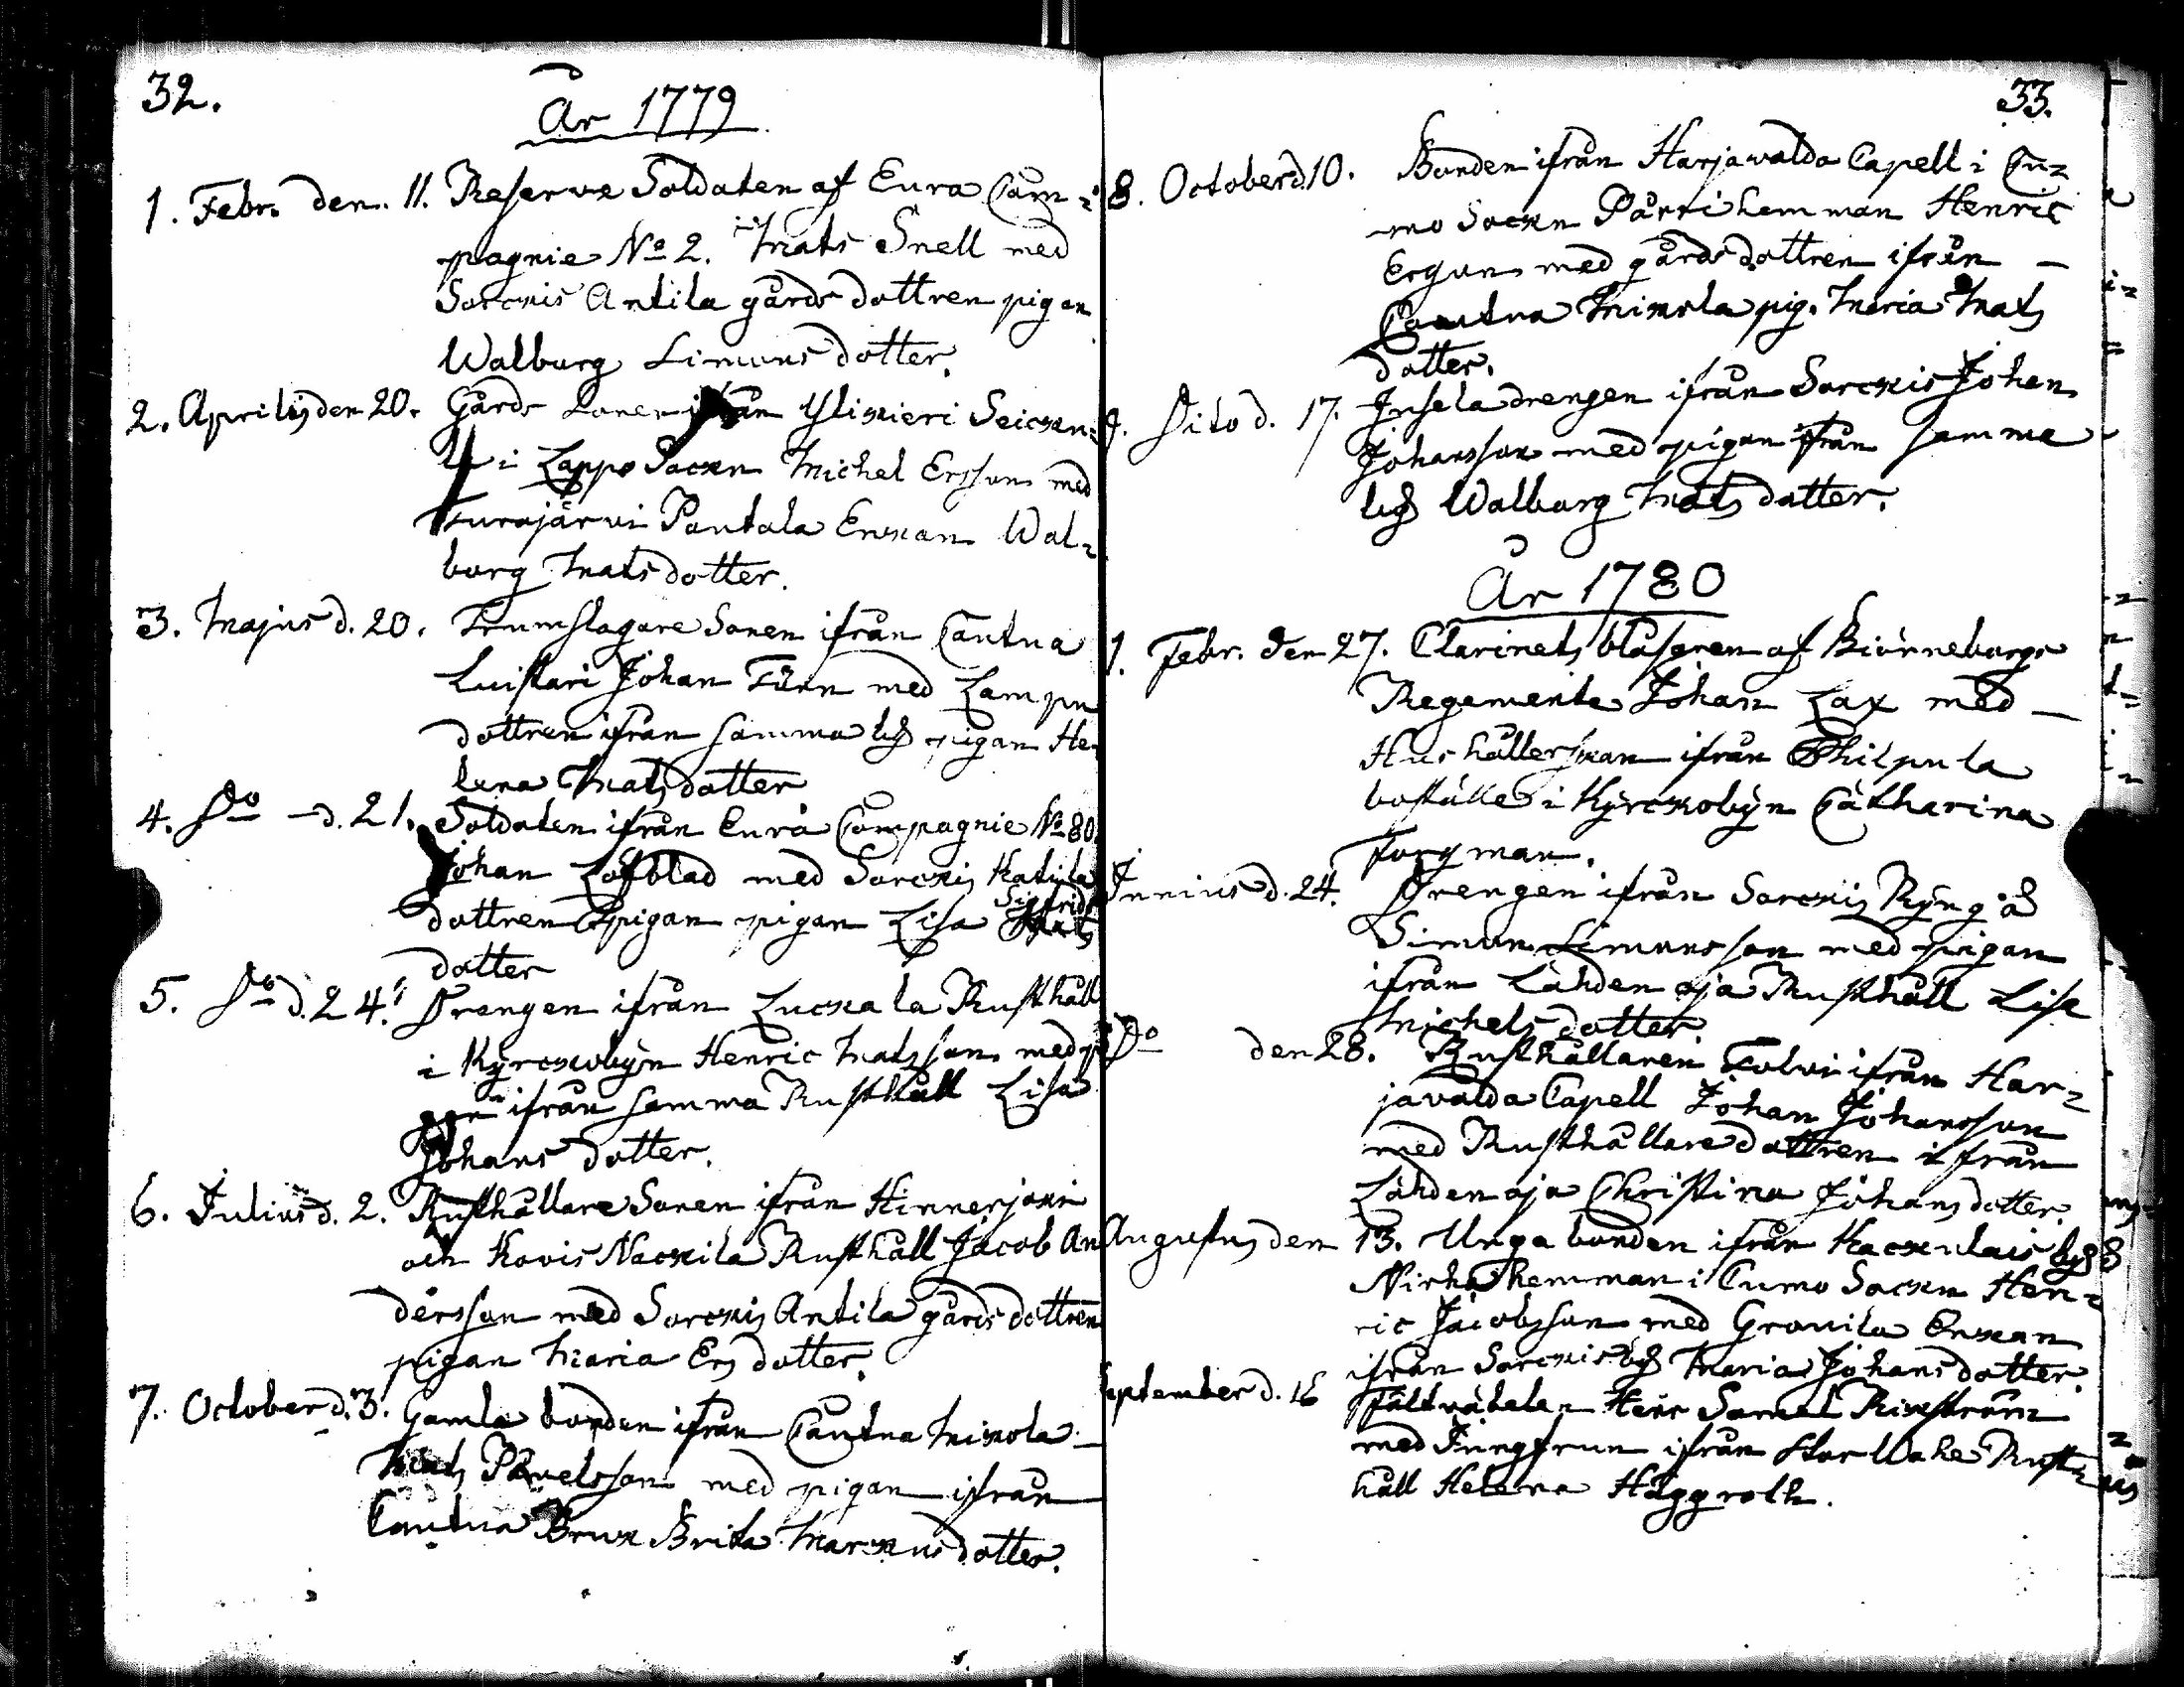 32.
År 1779
1. Febr. den. 11. Reserve Soldaten af Eura Com-
pagnie No 2. Mats Snell med
Sorckis Antila gårds dottren pigan
Walburg Simons dotter.
2. Aprilis den 20. Gårds Sonen ifrån Ylikieri
i Lappo Sockn Michel Ersson med
Turajärvi Pantola Enkan Wal-
borg Mats dotter.
3. Majus d. 20. Trumslagare Sonen ifrån Cautua
Luistari Johan Fürn med Lampu
dottren ifrån samma by pigan He-
lena Mats dotter
4. Do d. 21. Soldaten ifrån Eura Compagnie No 80
Johan Löfblad med Sorckis Katila
dottren pigan pigan Lisa Sigfrids
dotter
5. Do d. 24. Drengen ifrån Luckala Rusthåll
i Kyrckobyn Henric Matsson med pi
gan ifrån samma Rusthåll Lisa
Johans dotter.
6. Julius d. 2. Rusthållare Sonen ifrån Hinnerjoki
och Kovis Nackila Rusthåll Jacob An
dersson med Sorckis Antila gårds dottren
pigan Maria Ers dotter.
7. October d. 3. Gamla bonden ifrån Cautua Mikola
Mats Påvelsson med pigan ifrån
Cautua Bruk Brita Marckus dotter.
33.
8. October d. 10. Bonden ifrån Harjavalda Capell i Cu-
mo Sockn Pärri hemman Henric
Ersson med gårds dottren ifrån
Cautua Mikola pig. Maria Mats
dotter.
9. Dito d. 17. Insela drengen ifrån Sorckis Johan
Johansson med pigan ifrån samma
by Walborg Mats dotter.
År 1780
1. Febr. den 27. Clarinets blåseren af Biörneborgs
Regemente Johan Lax med
Hushållerskan ifrån Philpula
boställe i Kyrckobyn Catharina
Forsman.
Junius d. 24. Drengen ifrån Sorckis Ryngö
Simon Simonsson med pigan
ifrån Lähdenoja Rusthåll Lisa
Michels dotter.
Do den 28. Rusthållaren Tolvi ifrån Har-
javalda Capell Johan Johansson
med Rusthållare dottren ifrån
Lähdenoja Christina Johans dotter.
Augustus den 13. Unga bonden ifrån Kackulais by
hemman i Cumo Sockn Hen-
ric Jacobsson med Gronila Enkan
ifrån Sorckis by Maria Johans dotter.
September d. 16 Fältväbelen Herr Samel Rikström
med Jungfrun ifrån Stor Wahe Rust-
håll Helena Häggroth.